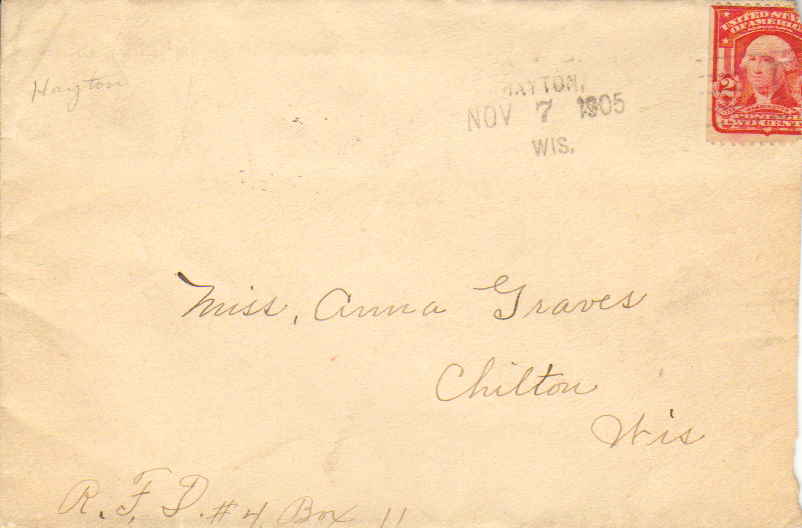 Hayton
HAYTON,
NOV 7 1905
WIS.
UNITED STATES
OF AMERICA
2
POSTAGE
TWO CENTS
Miss, Anna Graves
Chilton
Wis
R. F. D. #4 Box 11